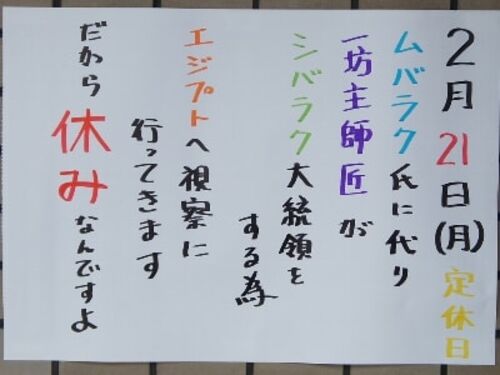 2月21日(月)定休日
ムバラク氏に代り
一坊主師匠が
シバラク大統領を
する為
エジプトへ視察に
行ってきます
だから休みなんですよ